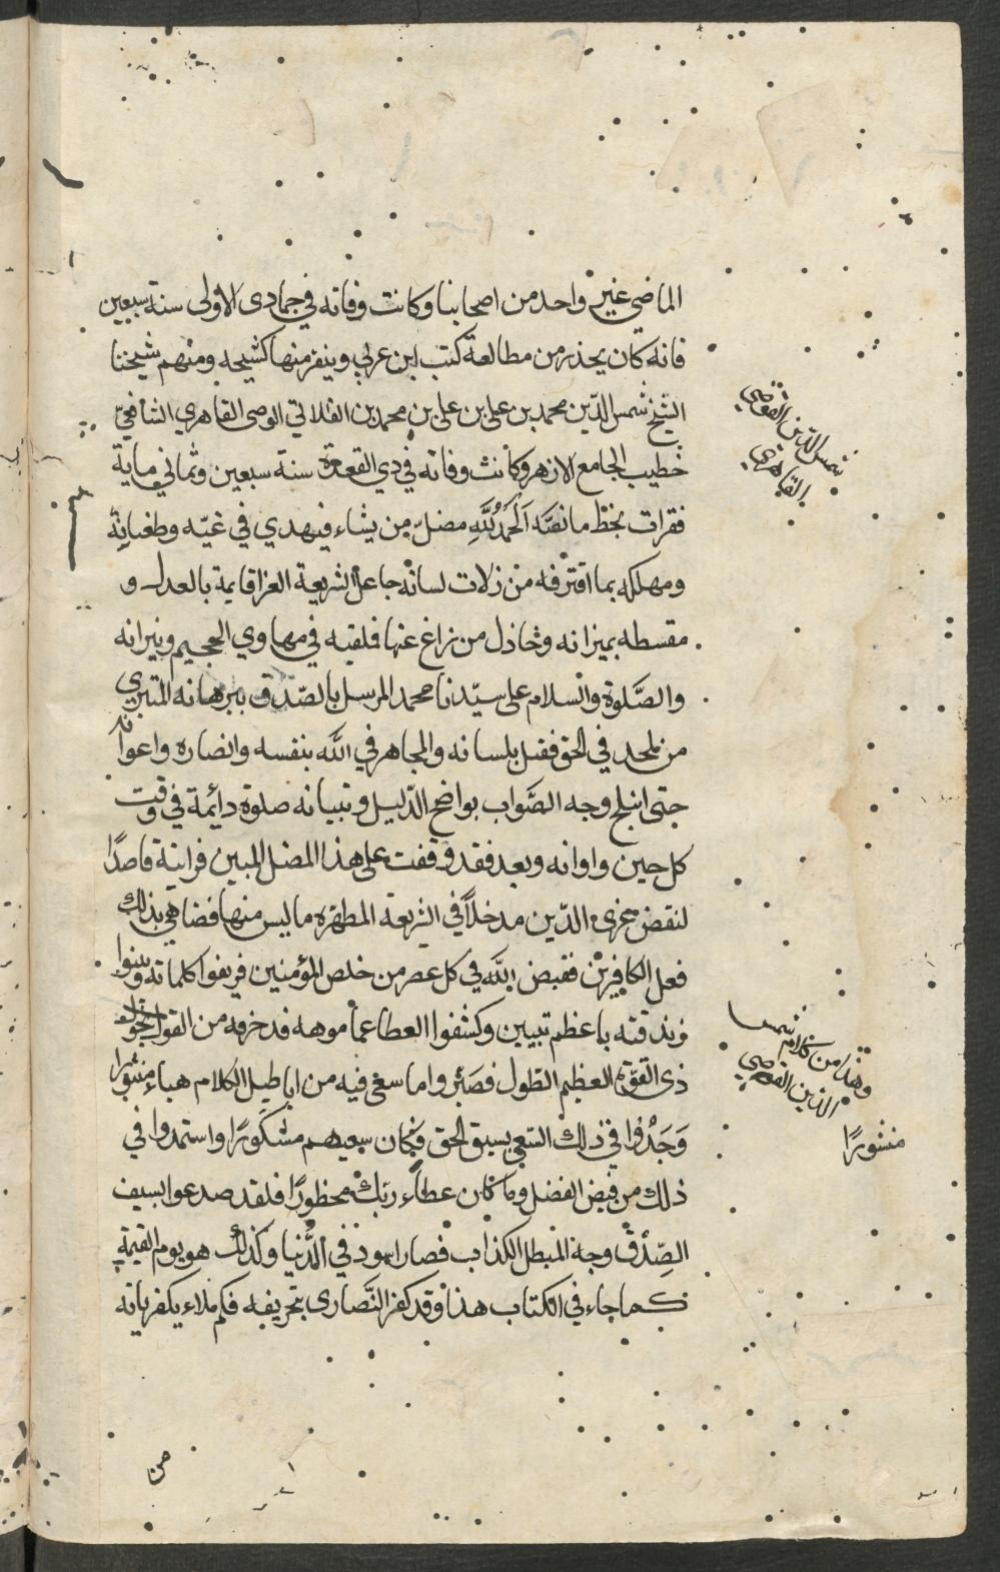 الماضي غير واحد من اصحابنا وكانت وفاته في جمادى الاولى سنة سبعين
فانه كان يحذر من مطالعة كتب ابن عربي وينفر منها كشيخه ومنهم شيخنا
الشيخ شمس الدّين محمد بن علي بن علي بن محمد بن الفلاتي الوصى القاهري الشافعيّ
خطيب الجامع الازهر وكانت وفاته في ذي القعدة سنة سبعين وثماني ماية
فقرات بخظ ما نصّه اَلحَمدُ لِلّهِ مضلّ من يشاء فيهدي في غيّه وطغيانه
ومهلكه بما اقترفه من زلات لسانه جاعل الشريعة الغرا قايمة بالعدل و
مقسطه بميزانه وخاذل من زاغ عنها فلقيه في مهاوي الجحيم ونيرانه
والصَّلوة والسلام على سيّدنا محمد المرسل بالصّدق ببرهانه المتبري
من يلحد في الحق فقيل بلسانه والمجاهر في اللّه بنفسه وانصاره واعوانه
حتى انبلج وجه الصَّواب بواضح الدّليل وتبيانه صلوة دائمة في وقت
كل حين واوانه وبعد فقد وقفت على هذا المضل المبين فراتة قاصدًا
لنقض عرى الدّين مدخلاً في الشريعة المطهره ما ليس منها فضاهي بذلك
فعل الكافرين فقبض اللّه في كل عصر من خلص المؤمنين فزيفوا كلماته وبينوا
زندقته باعظم تبيين وكشفوا الغطا عما موهه قد خرفه من القول بحول
ذي القوّة العظيم الطول فصيّروا ما سعى فيه من اباطيل الكلام هباء منثورا
وَجَدُوا في ذلك السّعي بسبق الحق فكان سعيهم مشكورًا واستمدوا في
ذلك من فيض الفضل وما كان عطاء ربك محظورًا فلقد صدعوا بسيف
الصِّدق وجه المبطل الكذاب فصار اسود في الدُّنيا وكذلك هو يوم القيمة
كما جاء في الكتاب هذا وقد كفر النّصارى بتحريفه فكم ملاء بكفرياته
شمس الدين القوصي
القاهري
وهذا من كلام شمس
الدين القوصي
منثورًا
من